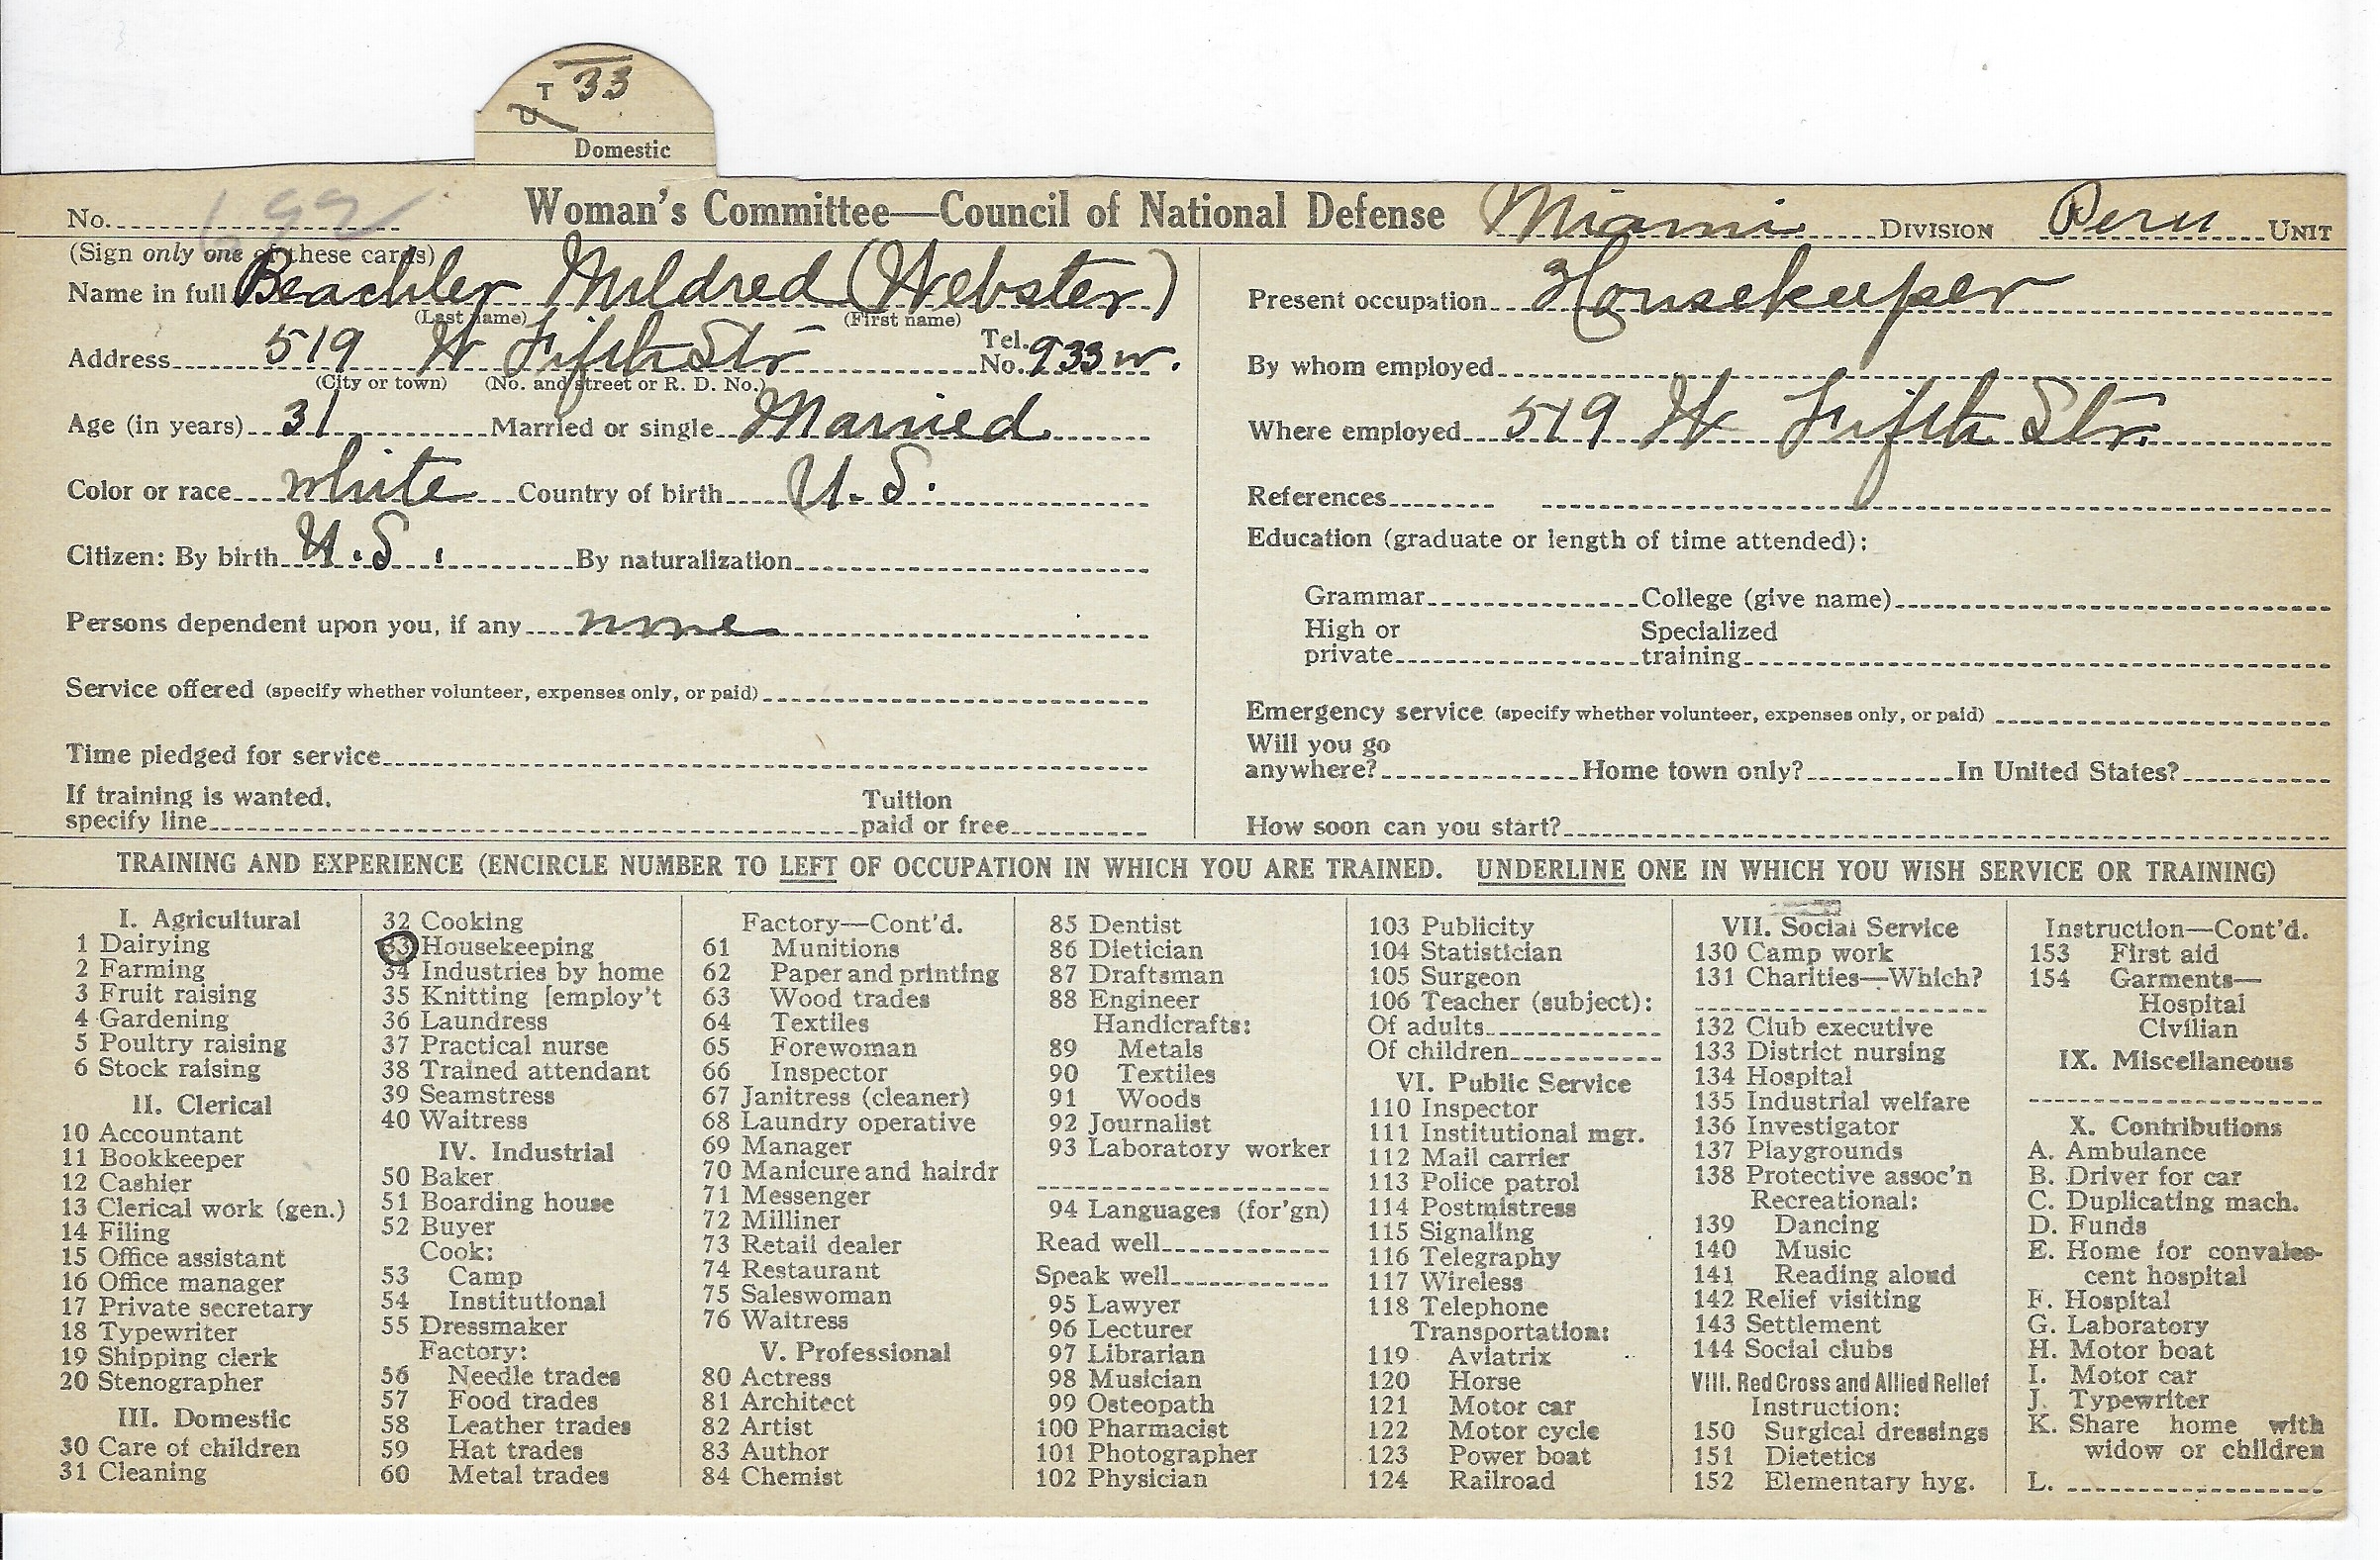 T 33
U
Domestic
No. 692 Woman's Committee—Council of National Defense Miami DIVISION Peru UNIT
(Sign only one of these cards)
Name in full Beachler Mildred (Webster)
(Last name) (First name)
Address 519 W Fifth Str Tel. No. 933 w.
(City or town) (No. and street or R. D. No.)
Age (in years) 31 Married or single Married
Color or race white Country of birth U.S.
Citizen: By birth U.S. By naturalization
Persons dependent upon you, if any none
Service offered (specify whether volunteer, expenses only, or paid)
Time pledged for service
If training is wanted, specify line Tuition paid or free
Present occupation Housekeeper
By whom employed
Where employed 519 W Fifth Str.
References
Education (graduate or length of time attended):
Grammar College (give name)
High or private Specialized training
Emergency service (specify whether volunteer, expenses only, or paid)
Will you go anywhere? Home town only? In United States?
How soon can you start?
TRAINING AND EXPERIENCE (ENCIRCLE NUMBER TO LEFT OF OCCUPATION IN WHICH YOU ARE TRAINED. UNDERLINE ONE IN WHICH YOU WISH SERVICE OR TRAINING)
I. Agricultural
1 Dairying
2 Farming
3 Fruit raising
4 Gardening
5 Poultry raising
6 Stock raising
II. Clerical
10 Accountant
11 Bookkeeper
12 Cashier
13 Clerical work (gen.)
14 Filing
15 Office assistant
16 Office manager
17 Private secretary
18 Typewriter
19 Shipping clerk
20 Stenographer
III. Domestic
30 Care of children
31 Cleaning
32 Cooking
33 Housekeeping
34 Industries by home
35 Knitting [employ't
36 Laundress
37 Practical nurse
38 Trained attendant
39 Seamstress
40 Waitress
IV. Industrial
50 Baker
51 Boarding house
52 Buyer
Cook:
53 Camp
54 Institutional
55 Dressmaker
Factory:
56 Needle trades
57 Food trades
58 Leather trades
59 Hat trades
60 Metal trades
Factory—Cont'd.
61 Munitions
62 Paper and printing
63 Wood trades
64 Textiles
65 Forewoman
66 Inspector
67 Janitress (cleaner)
68 Laundry operative
69 Manager
70 Manicure and hairdr
71 Messenger
72 Milliner
73 Retail dealer
74 Restaurant
75 Saleswoman
76 Waitress
V. Professional
80 Actress
81 Architect
82 Artist
83 Author
84 Chemist
85 Dentist
86 Dietician
87 Draftsman
88 Engineer
Handicrafts:
89 Metals
90 Textiles
91 Woods
92 Journalist
93 Laboratory worker
94 Languages (for'gn)
Read well
Speak well
95 Lawyer
96 Lecturer
97 Librarian
98 Musician
99 Osteopath
100 Pharmacist
101 Photographer
102 Physician
103 Publicity
104 Statistician
105 Surgeon
106 Teacher (subject):
Of adults
Of children
VI. Public Service
110 Inspector
111 Institutional mgr.
112 Mail carrier
113 Police patrol
114 Postmistress
115 Signaling
116 Telegraphy
117 Wireless
118 Telephone
Transportation:
119 Aviatrix
120 Horse
121 Motor car
122 Motor cycle
123 Power boat
124 Railroad
VII. Social Service
130 Camp work
131 Charities—Which?
132 Club executive
133 District nursing
134 Hospital
135 Industrial welfare
136 Investigator
137 Playgrounds
138 Protective assoc'n
Recreational:
139 Dancing
140 Music
141 Reading aloud
142 Relief visiting
143 Settlement
144 Social clubs
VIII. Red Cross and Allied Relief
Instruction:
150 Surgical dressings
151 Dietetics
152 Elementary hyg.
Instruction—Cont'd.
153 First aid
154 Garments—
Hospital
Civilian
IX. Miscellaneous
X. Contributions
A. Ambulance
B. Driver for car
C. Duplicating mach.
D. Funds
E. Home for convales-
cent hospital
F. Hospital
G. Laboratory
H. Motor boat
I. Motor car
J. Typewriter
K. Share home with
widow or children
L.